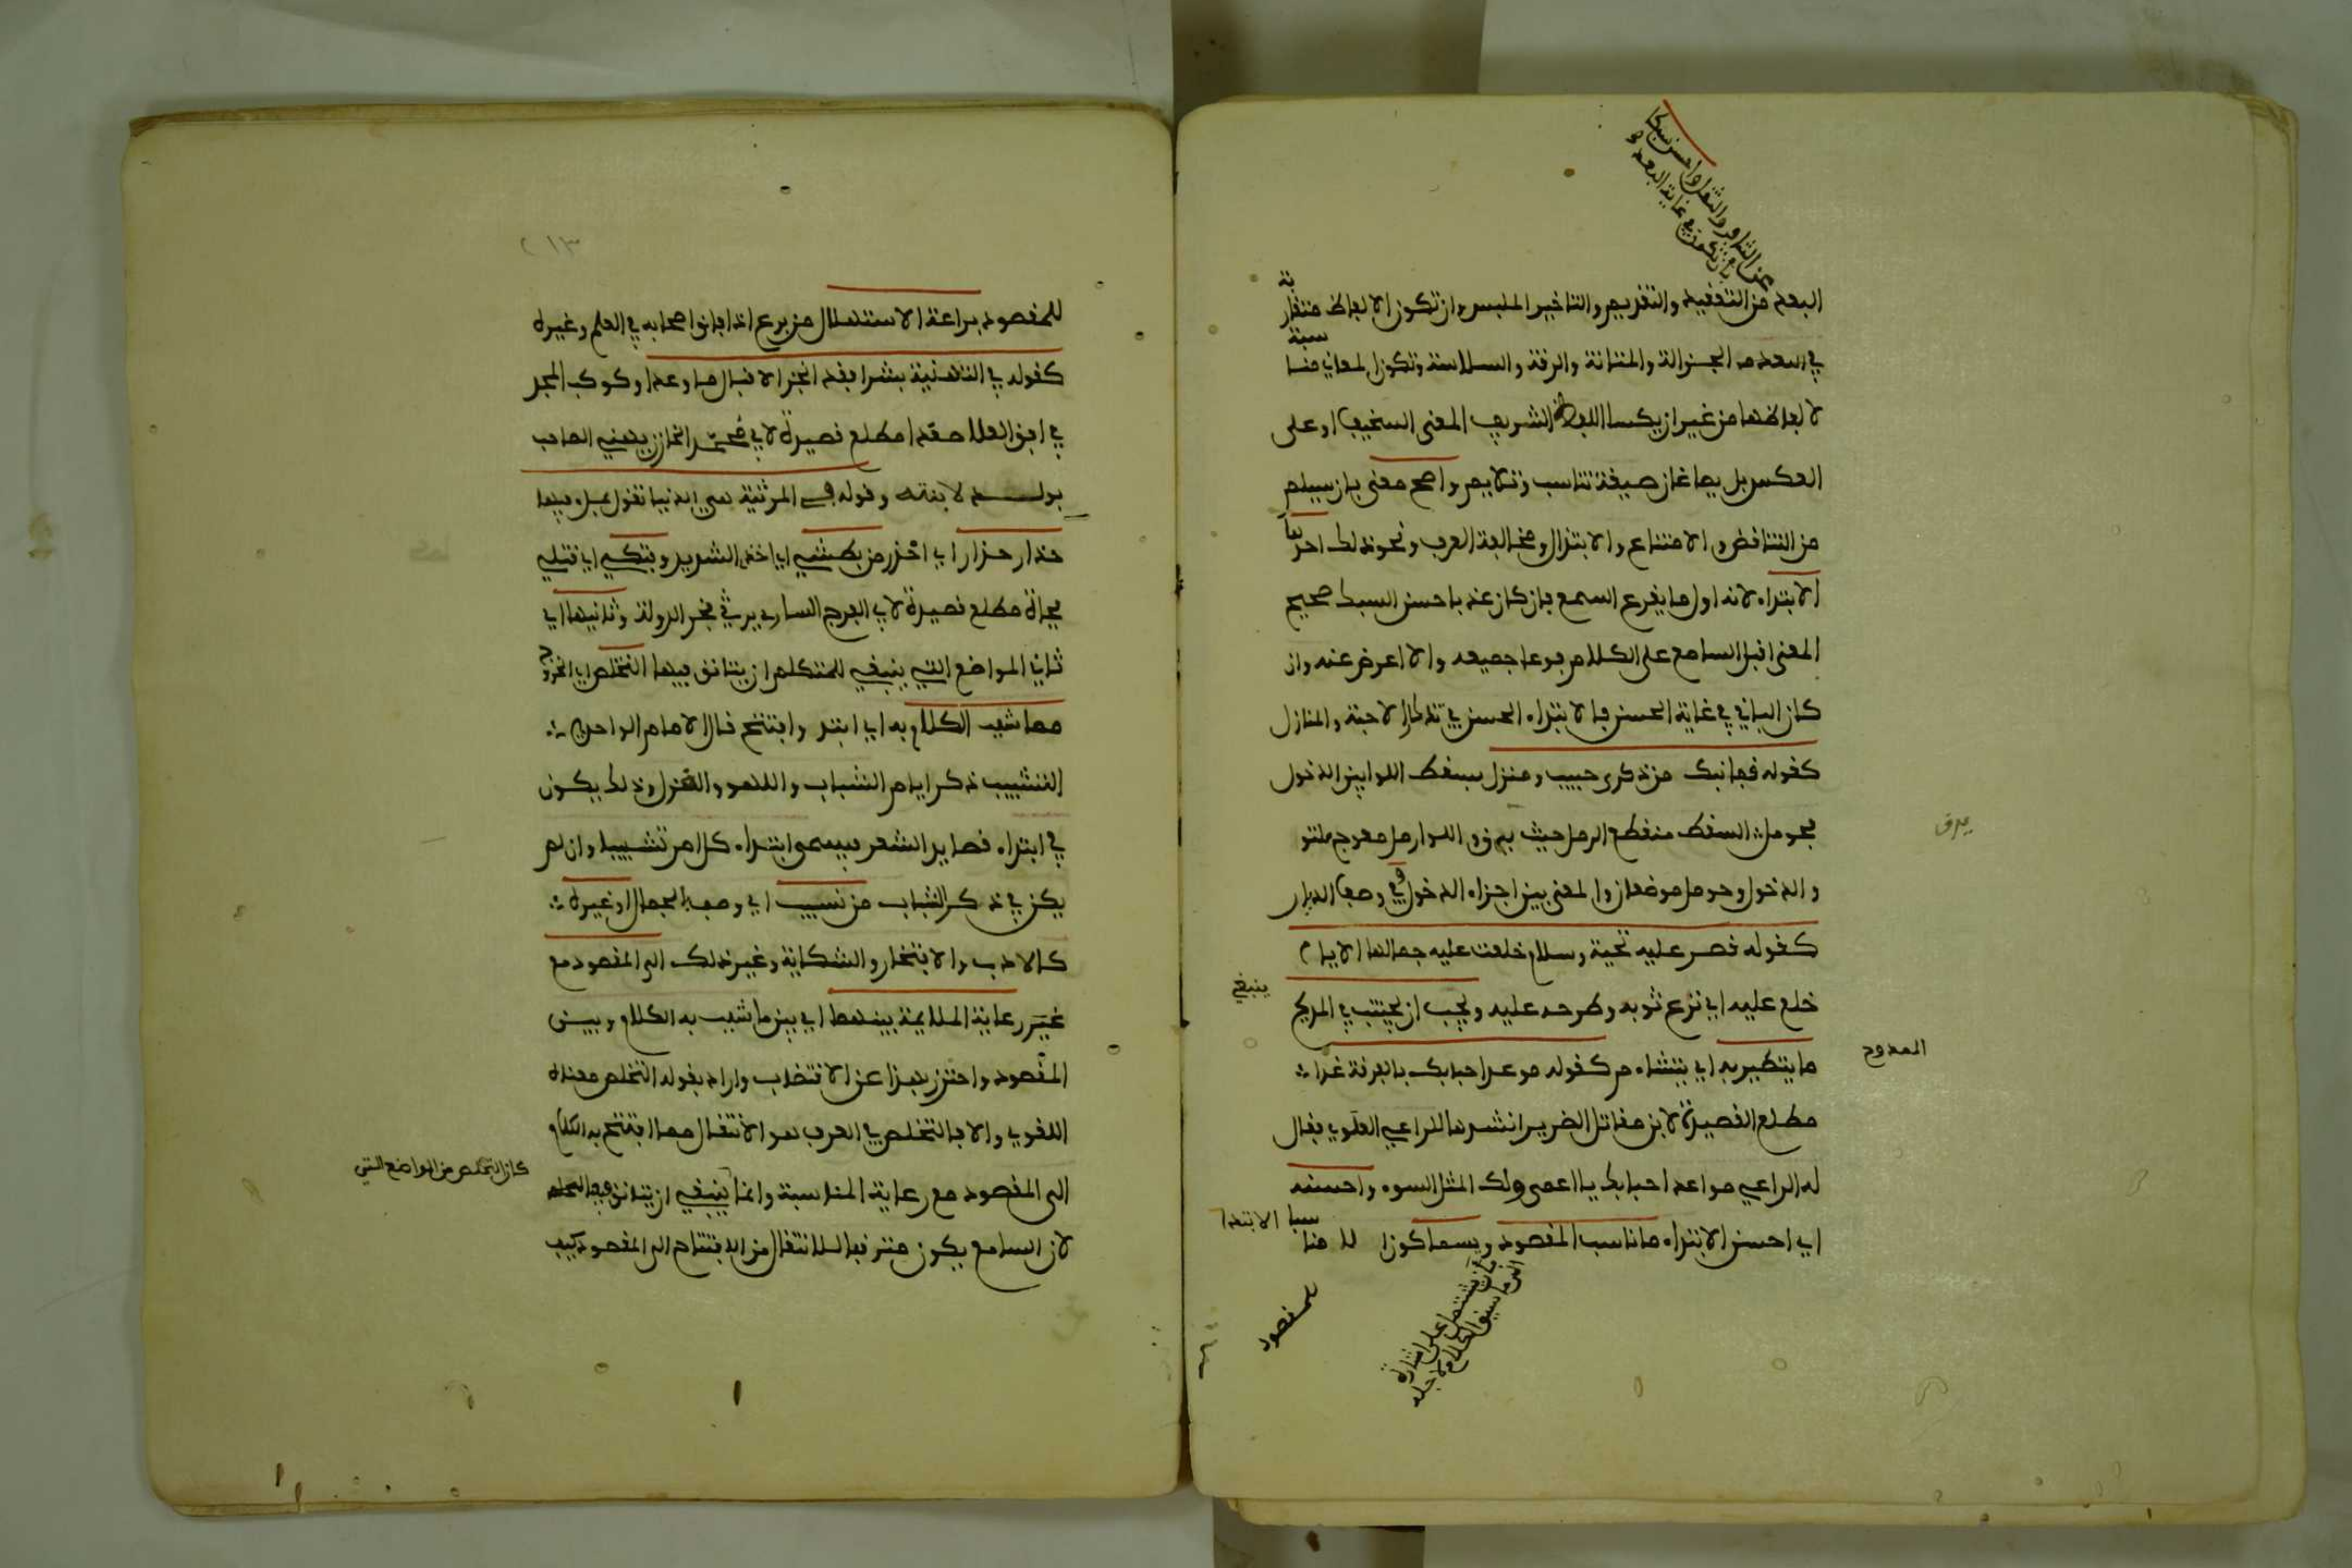 من التنافر والثقل واحسن سبكا
بان يكون في غاية البعد
البعد من التعقيد والتقديم والتاخير الملبس وان تكون الالفاظ متقاربة
في الجزالة والمتانة والرقة والسلاسة وتكون المعاني مناسبة
لالفاظها من غير ان يكسا اللفظ الشريف المعنى السخيف او على
العكس بل يصاغان صيغة تناسب وتلايم واصح معنى بان سيلم
من التناقض والامتناع والابتذال ومخالفة العرب ونحو ذلك احدها
الابتداء لانه اول ما يقرع السمع فان كان عذبا حسن السبك صحيح
المعنى اقبل السامع على الكلام فوعا جميعه والا اعرض عنه وان
كان الباقي في غاية الحسن فالابتداء الحسن في تذكار الاحبة والمنازل
كقوله قفا نبك من ذكرى حبيب ومنزل بسقط اللوا بين الدخول
فحومل السقط منقطع الرمل حيث يدق واللوا رمل معوج ملتو
يدق
والدخول وحومل موضعان والمعنى بين اجزاء الدخول وفي وصف الديار
كقوله قصر عليه تحية وسلام خلعت عليه جمالها الايام
خلع عليه اي نزع ثوبه وطرحه عليه ويجب ان يجتنب في المديح
ينبغي
ما يتطير به اي يتشاءم كقوله موعد احبابك بالفرقة غدا
الممدوح
مطلع القصيدة لابن مقاتل الضرير انشدها للداعي العلوي فقال
له الداعي موعد احبابك يا اعمى ولك المثل السوء واحسنه
اي احسن الابتداء ما ناسب المقصود ويسما كون الابتدا مناسبا
للمقصود
بان يشتمل على اشارة
الى ما سيق الكلام لاجله
٢١٣
للمقصود براعة الاستهلال من برع اذا فاق اصحابه في العلم وغيره
كقوله في التهنية بشرا فقد انجز الاقبال ما وعدا وكوكب المجد
في افق العلا صعدا مطلع قصيدة لابي محمد الخازن يهني الصاحب
بولد لابنته وقوله في المرثية هي الدنيا تقول بملء فيها
حذار حذار اي احذر من بطشي اي اخذي الشديد وفتكي اي قتلي
فجاة مطلع قصيدة لابي الفرج الساوي يرثي فخر الدولة وثانيها اي
ثاني المواضع التي ينبغي للمتكلم ان يتانق فيها التخلص اي الخروج
مما شبب الكلام به اي ابتدى وافتتح قال الامام الواحدي
التشبيب ذكر ايام الشباب واللهو والغزل وذلك يكون
في ابتداء قصايد الشعر فيسمى ابتداء كل امر تشبيبا وان لم
يكن في ذكر الشباب من نسيب اي وصف الجمال او غيره
كالادب والافتخار والشكاية وغير ذلك الى المقصود مع
رعاية الملايمة بينهما اي بين ما شبب به الكلام وبين
المقصود واحترز بهذا عن الاقتضاب واراد بقوله التخلص معناه
اللغوي والا فالتخلص في العرف هو الانتقال مما افتتح به الكلام
الى المقصود مع رعاية المناسبة وانما ينبغي ان يتانق فيه
كان التخلص من المواضع التي
لان السامع يكون مترقبا للانتقال من الافتتاح الى المقصود كيف